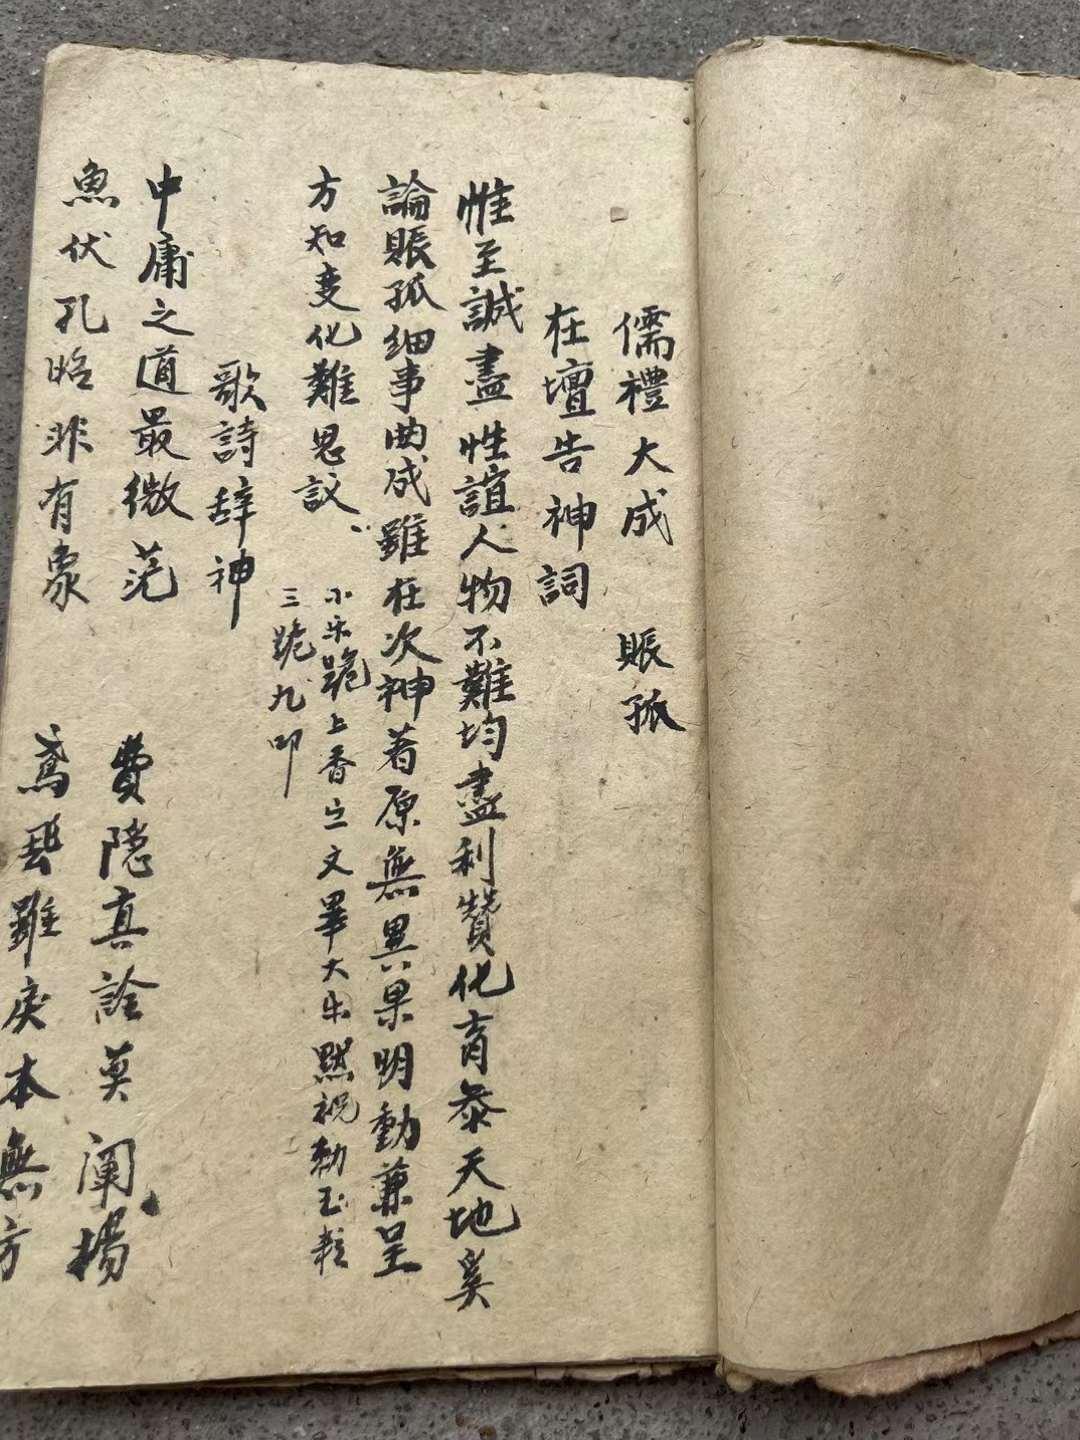 儒禮大成　賑孤
在壇告神詞
惟至誠盡性誼人物不難均盡利贊化育叅天地奚
論賑孤细事曲成雖在次神著原無異果明動兼呈
方知变化難思議
小乐跪上香亠文畢大乐默祝勅玉粒
三跪九叩
歌詩辞神
中庸之道最微茫　費隐真詮莫阐揚
魚伏孔昭非有象　鳶飛雖戾本無方